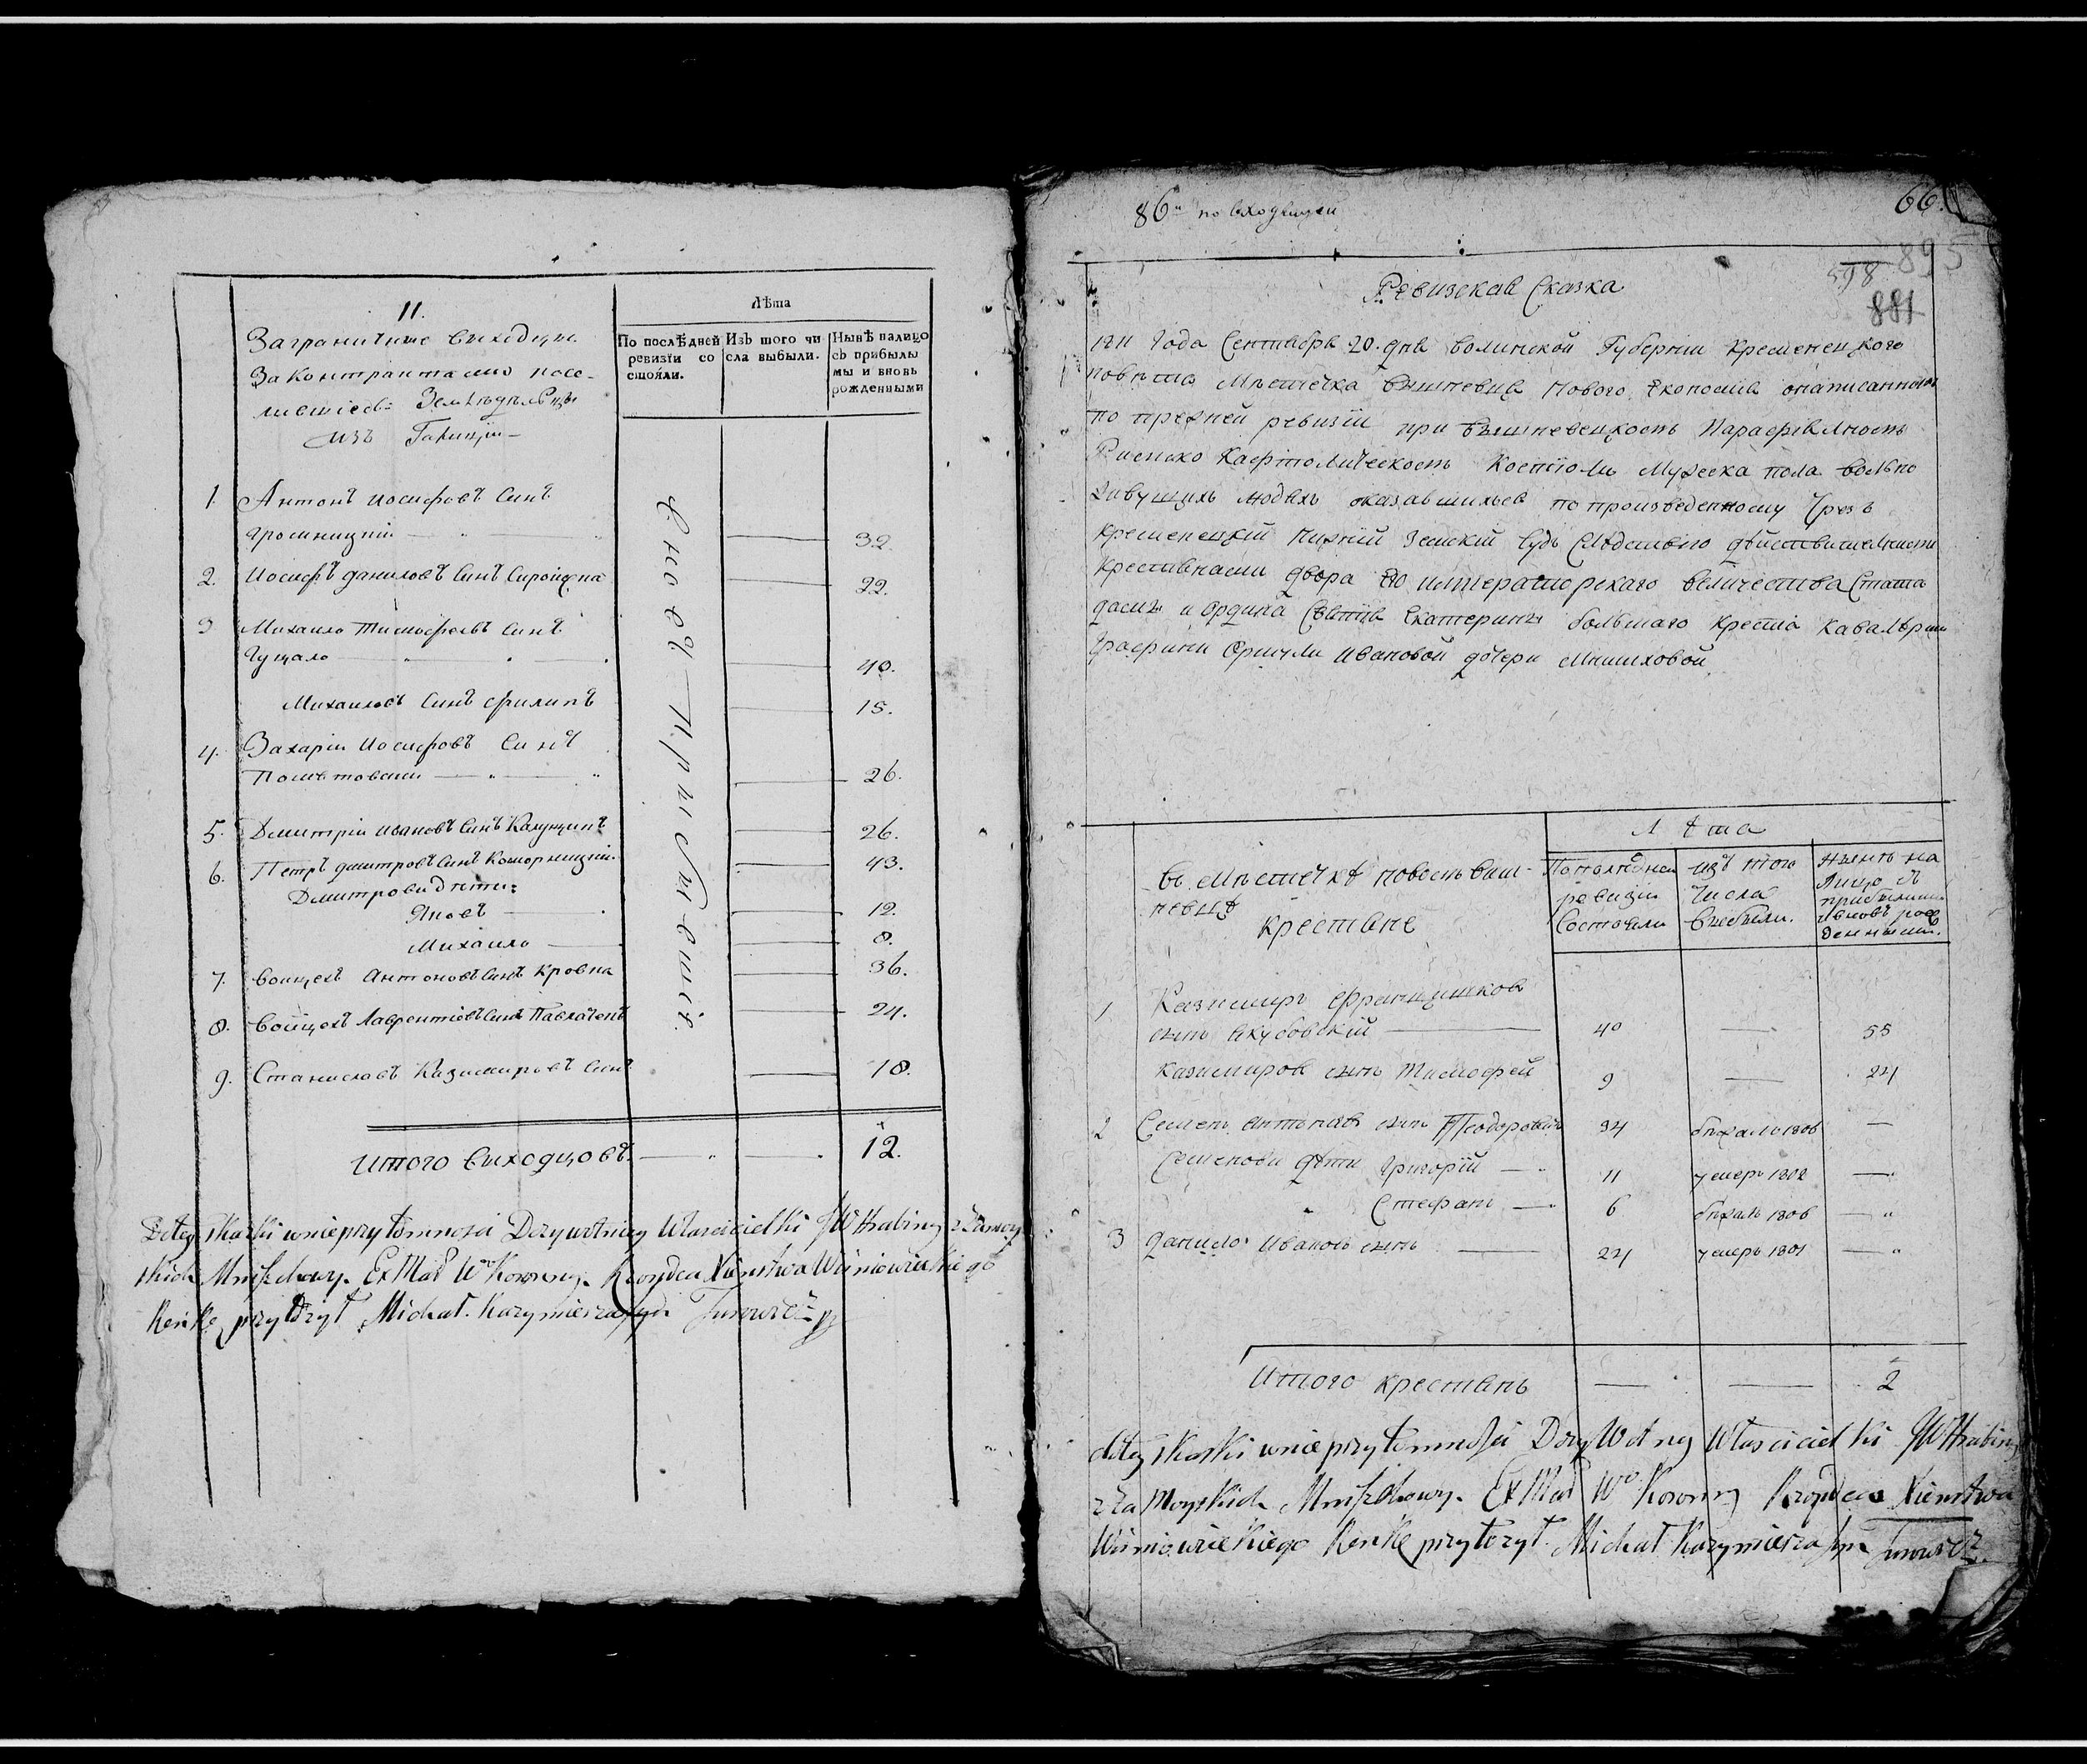 11.
Заграничние виходци
За контрактами посе-
лившіесь Земледельци
изъ Галиціи
Лѣта
По послѣдней ревизїи состояли.
Изъ того числа выбыли.
Нынѣ налицо съ прибылыми и вновь рожденными
1. Антонъ иосифовъ Синъ
Яромницкій — 32.
2. Иосифъ даниловъ Синъ — 22.
3 Михаило Тимофеевъ Синъ
Гуцало — 40.
Михаиловъ Синъ филипъ — 15.
4. Захарій Иосифовъ Синъ
— 26.
5. Дмитрій ивановъ Синъ — 26.
6. Петръ дмитровъ Синъ Коморницкій. — 43.
Дмитрови дѣти:
Яковъ — 12.
Михаило — 8.
7. Войцехъ Антоновъ Синъ Кровпа — 36.
8. Войцехъ Лаврентіевъ Синъ — 24.
9. Станиславъ Казимировъ Синъ — 18.
Итого Виходцовъ. — 12.
Do tey skaski w nieprzytomności Dożywotniey Właścicielki JW Hrabiny z Zamoy
skich Mniszchowy. Ex Mar Wo Koronney. Rządca Xięstwa Wiśniowieckiego
Renke przyłożył Michał Kazymierza syn
86 по входящей
66.
895
598
881
Ревизская Сказка
1811 года Сентября 20. дня волинской Губерніи кременецкого
повѣта Мѣстечка вишневца Нового
по прежней ревизіи при вишневецкомъ Парафіялномъ
Римско Кафтолическомъ Костіоли Мужеска пола волно
живущихъ людяхъ оказавшихся по произведенному чрезъ
Кременецкій Нижній Земскій Судъ Слѣдствію дѣйствителными
Крестянами двора Его императорскаго величества Статс
дами и Ордина Святія Екатерини болшаго креста Кавалѣр
Графини Уршули Ивановой дочери Мнишховой
Во Мѣстечкѣ Новомъ виш-
невцѣ
крестяне
Лѣта
По послѣдней ревизіи Состояли
изъ того числа вибили.
нынѣ на лицо съ прибилими и вновь рожденными.
1 Казимиръ Францишковъ
синъ Якубовскій — 40 — 55
Казимировъ синъ Тимофей 9 — 24
2 Семенъ Антоновъ синъ 34 бѣжалъ 1806 —
Семенови дѣти Григорій — 11 умеръ 1802 —
Стефанъ — 6 бѣжалъ 1806 —
3 Данило Ивановъ синъ — 24 умеръ 1801 —
Итого крестянъ — — 2
do tey skaski w nieprzytomności Dożywotney Właścicielki JW Hrabiny
z Zamoyskich Mniszchowy. Ex Mar Wo Koronney Rządca Xięstwa
Wiśniowieckiego Renke przyłożył. Michał Kazymierza syn